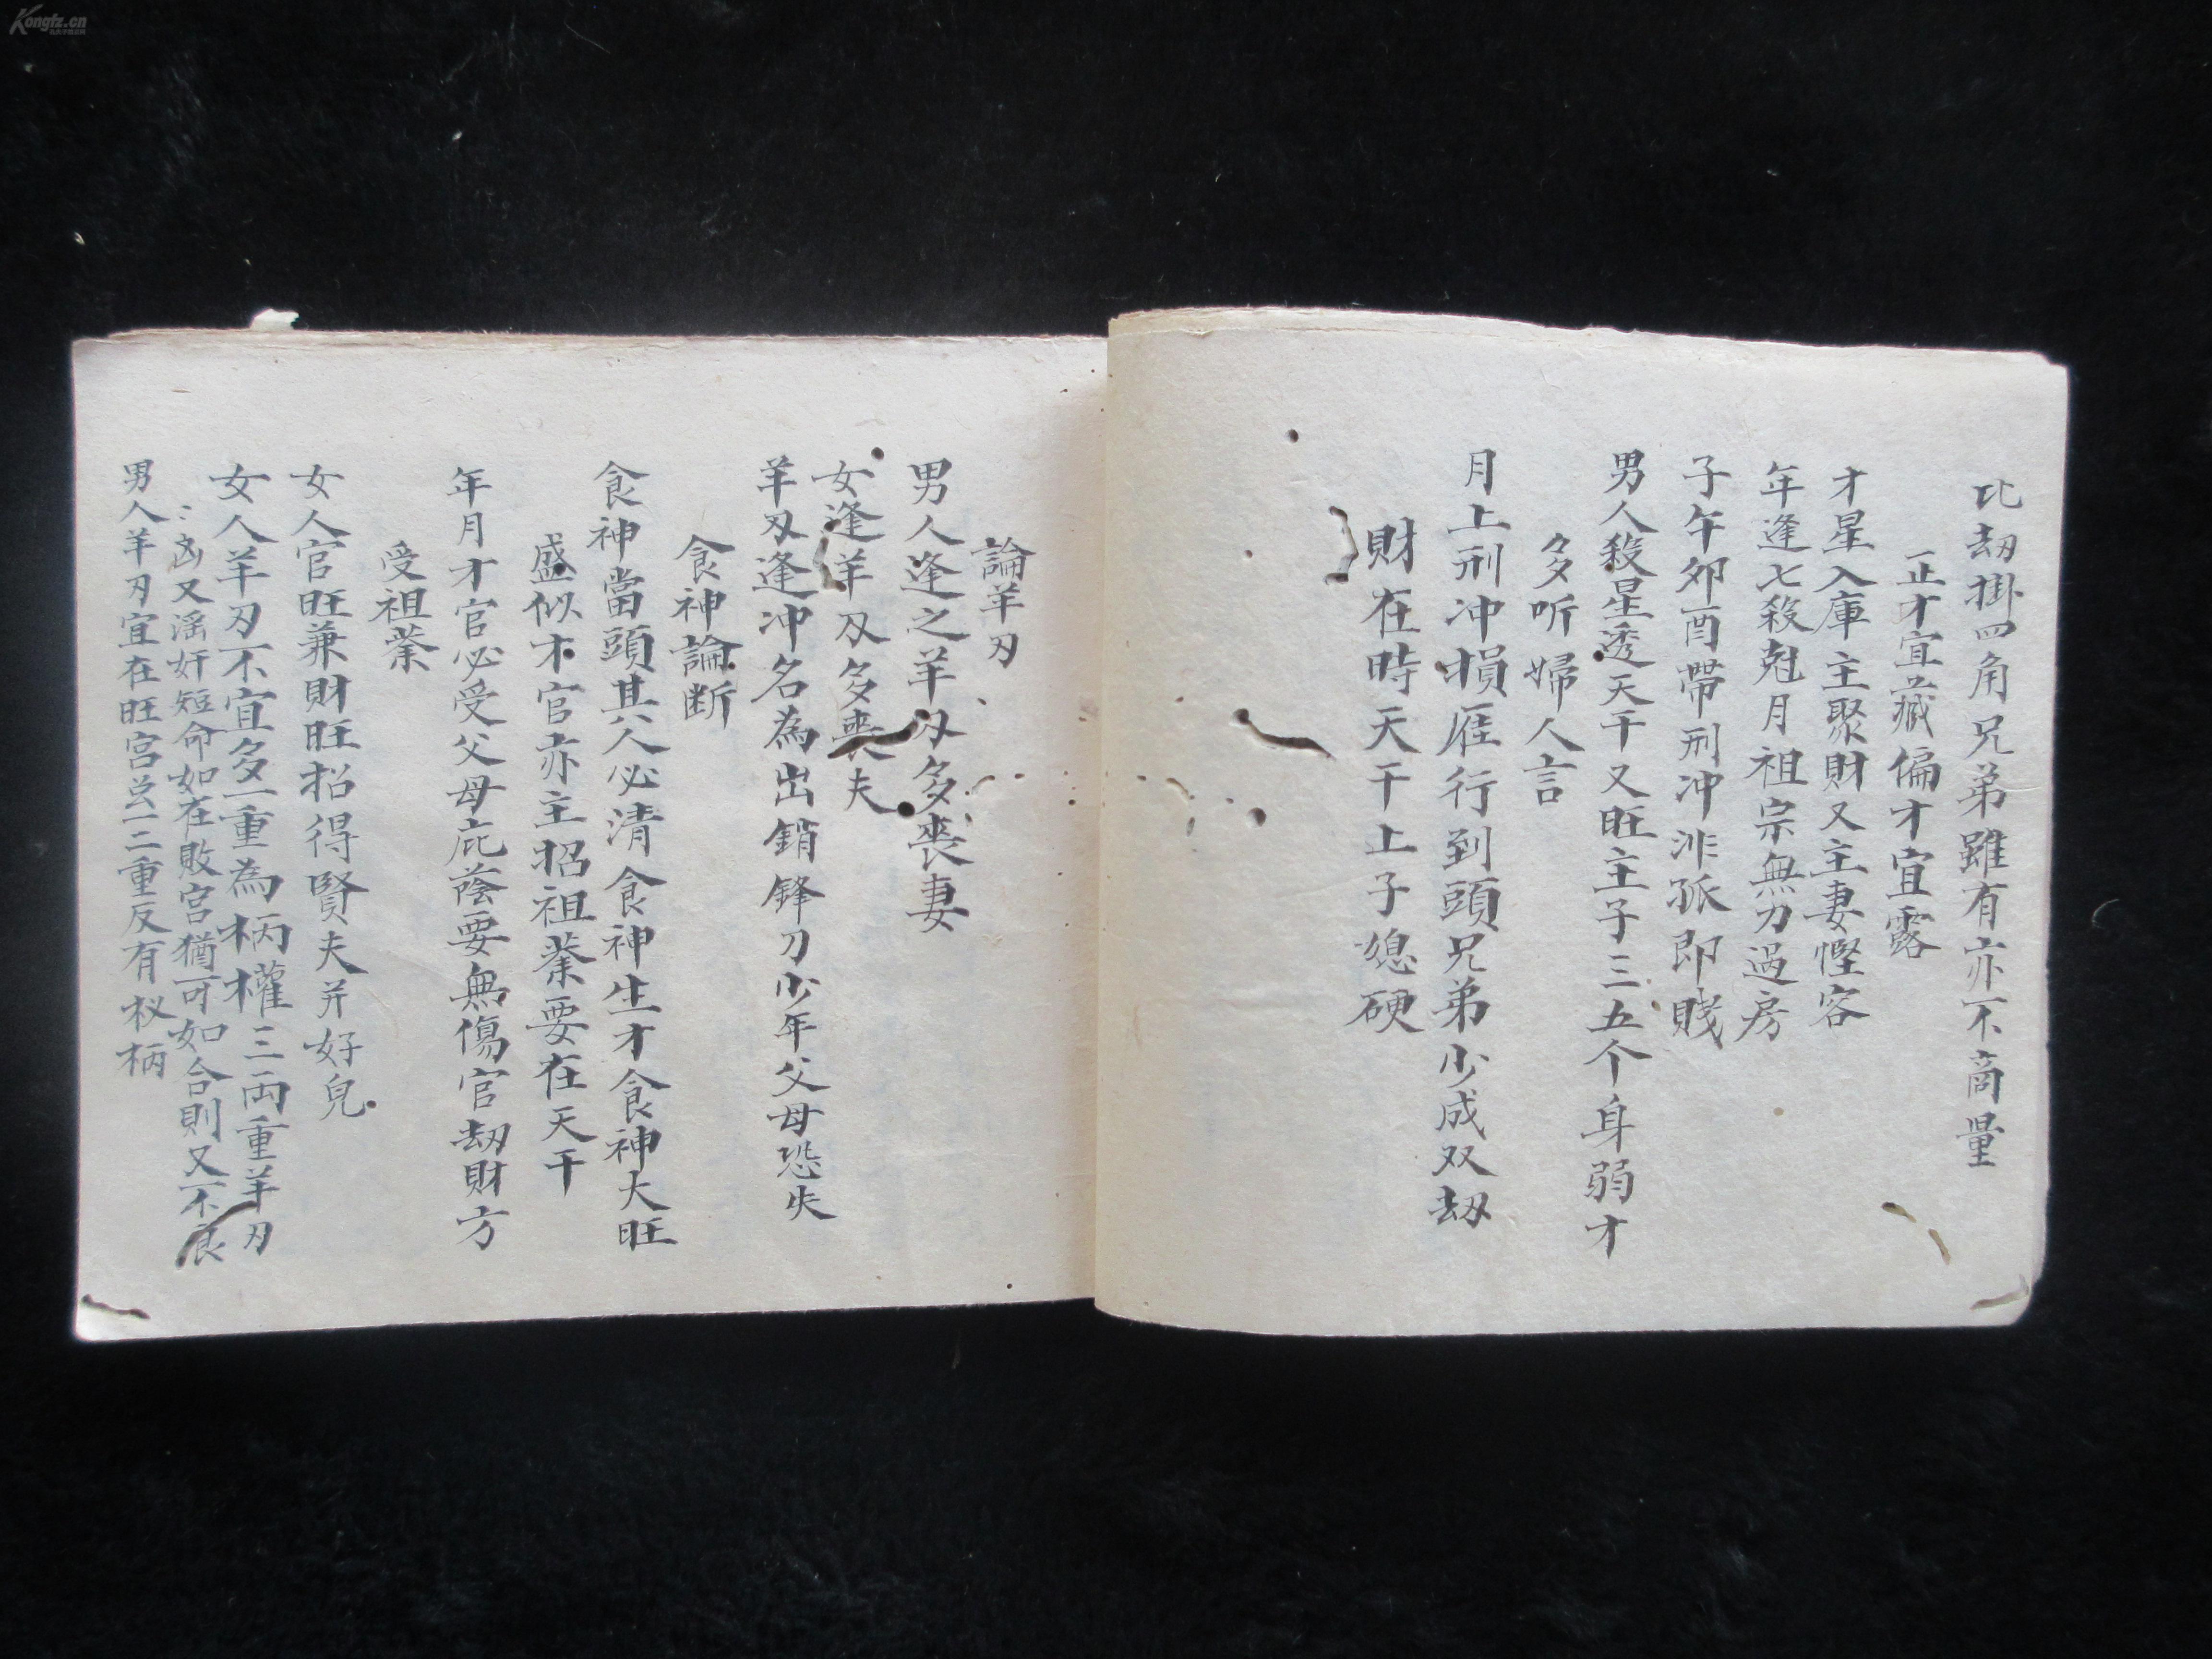 比刼掛四角兄弟雖有亦不商量
正才宜藏偏才宜露
才星入庫主聚財又主妻慳吝
年逢七殺尅月祖宗無力過房
子午夘酉帶刑冲非孤即賤
男人殺星透天干又旺主子三五个身弱才
多听婦人言
月上刑冲損雁行到頭兄弟少成双刼
財在時天干上子媳硬
論羊刃
男人逢之羊刃多喪妻
女逢羊刃多喪夫
羊刃逢冲名為出銷鋒刀少年父母恐失
食神論断
食神當頭其人必清食神生才食神大旺
盛似才官亦主招祖業要在天干
年月才官必受父母庇蔭要無傷官刼財方
受祖業
女人官旺兼財旺招得賢夫并好兒
女人羊刃不宜多一重為柄權三両重羊刃
凶又淫奸短命如在敗宮猶可如合則又不良
男人羊刃宜在旺宮一二重反有权柄
Kongfz.cn